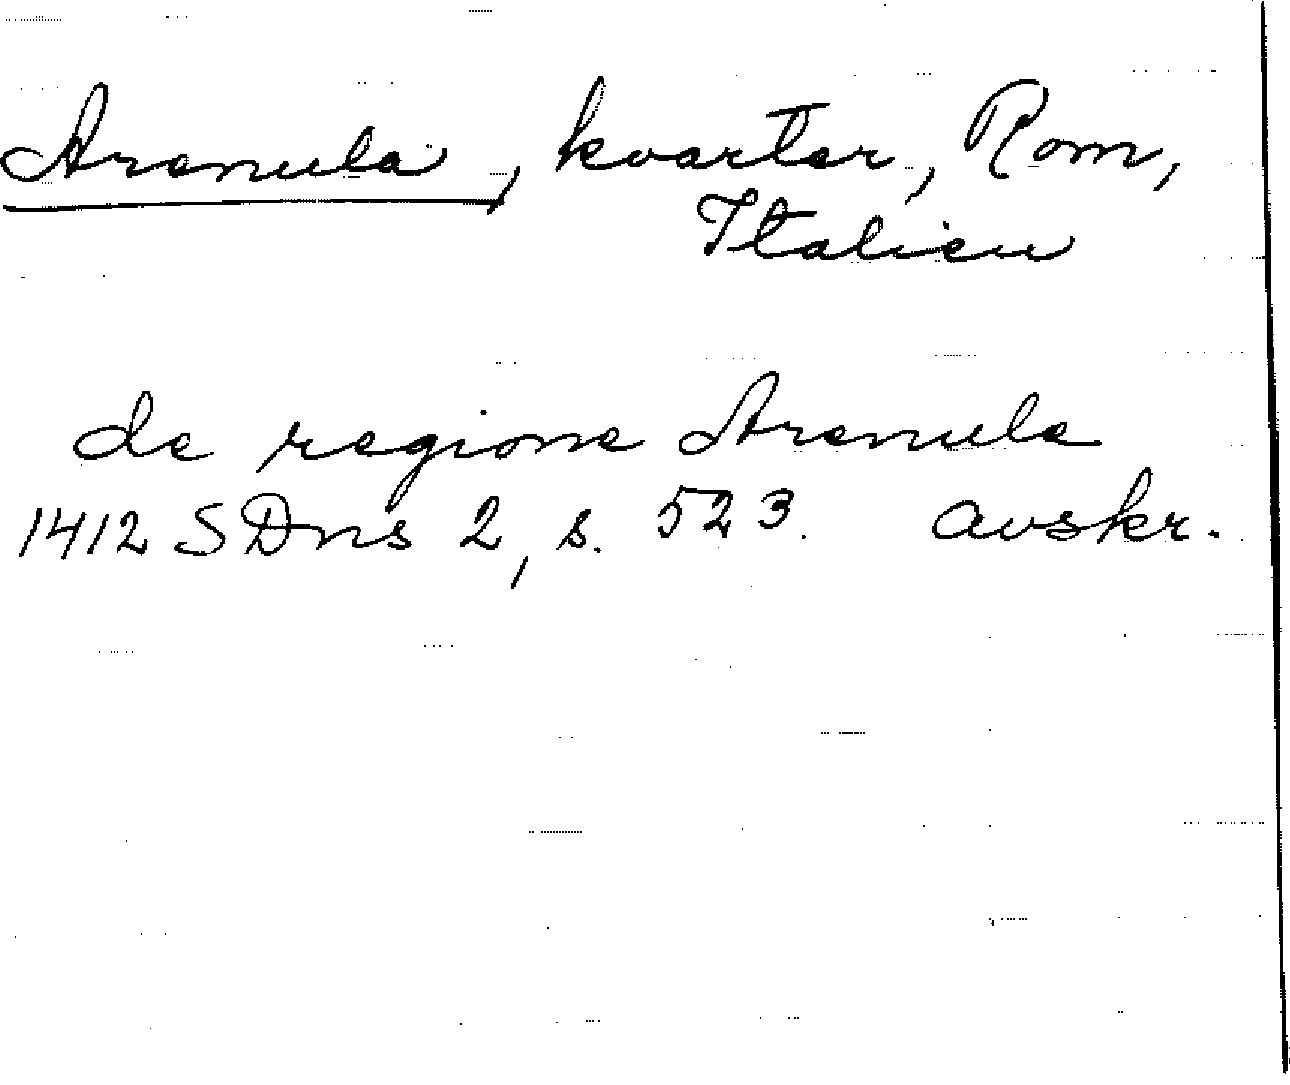 Arenula, kvarter, Rom,
Italien
de regione Arenule
1412 SDns 2, s. 523. avskr.